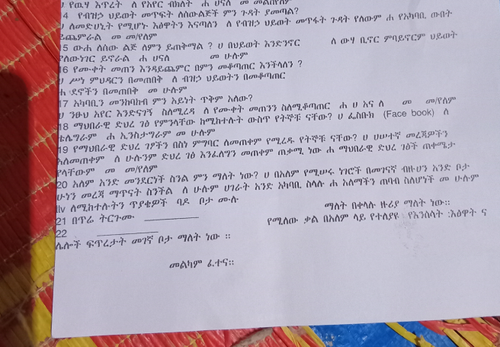 ሀ የዉሃ እጥረት ለ የአየር ብክለት ሐ ሀናለ መ መልስየለም
14 የብዝኃ ህይወት መጥፋት ለሰውልጅች ምን ጉዳት ያመጣል?
ሀ ለመድሀኒት የሚሆኑ እፅዋትን እናጣለን ለ የብዝኃ ህይወት መጥፋት ጉዳት የለውም ሐ የአካባቢ ውበት
ይጨምራል መ መ/የለም
15 ውሐ ለሰው ልጅ ለምን ይጠቅማል ? ሀ በህይወት እንድንኖር ለ ውሃ ቢኖር ምባይኖርም ህይወት
የለውነገር ይኖራል ሐ ሀናለ መ ሁሉም
16 የሙቀት መጠን እንዳይጨምር በምን መቆጣጠር እንችላለን ?
ሀ ሥነ ምህዳርን በመጠበቅ ለ ብዝኃ ህይወትን በመቆጣጠር
ሐ ደኖችን በመጠበቅ መ ሁሉም
17 አካባቢን መንከባከብ ምን አይነት ጥቅም አለው?
ሀ ንፁህ አየር እንድናገኝ ስለሚረዳ ለ የሙቀት መጠንን ስለሚቆጣጠር ሐ ሀ እና ለ መ መ/የለም
18 ማህበራዊ ድህረ ገፅ የምንላቸው ከሚከተሉት ውስጥ የትኞቹ ናቸው? ሀ ፌስቡክ (Face book) ለ
ቴሌግራም ሐ ኢንስታግራም መ ሁሉም
19 የማህበራዊ ድህረ ገፆችን በስነ ምግባር ለመጠቀም የሚረዱ የትኞቹ ናቸው? ሀ ሀሠተኛ መረጃዎችን
አለመጠቀም ለ ሁሉንም ድህረ ገፅ እንፈለግን መጠቀም ጠቃሚ ነው ሐ ማህበራዊ ድህረ ገፆች ጠቀሜታ
የላቸውም መ መ/የለም
20 አለም አንድ መንደርነች ስንል ምን ማለት ነው? ሀ በአለም የሚሠሩ ነገሮች በመገናኛ ብዙሀን አንድ ቦታ
ሁነን መረጃ ማጥናት ስንችል ለ ሁሉም ሀገራት አንድ አካባቢ ስላሉ ሐ አለማችን ጠባብ ስለሆነች መ ሁሉም
llv ለሚከተሉትን ጥያቄዎች ባዶ ቦታ ሙሉ
21 በጥሬ ትርጉሙ ማለት በቀላሉ ዙሪያ ማለት ነው::
22 የሚለው ቃል በአለም ላይ የተለያዩ የእንስሳት :እፅዋት ና
ሌሎች ፍጥረታት መገኛ ቦታ ማለት ነው ::
መልካም ፈተና::